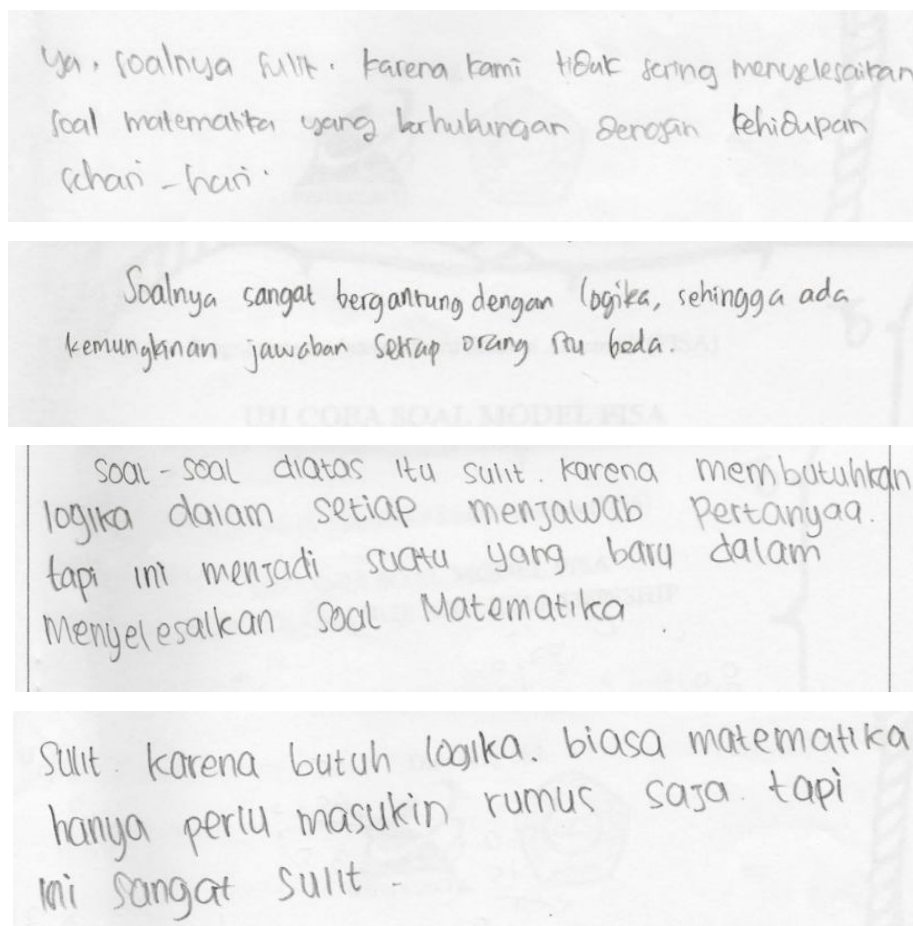 ya, soalnya sulit. karena kami tidak sering menyelesaikan
soal matematika yang berhubungan dengan kehidupan
sehari - hari.
Soalnya sangat bergantung dengan logika, sehingga ada
kemungkinan jawaban setiap orang itu beda.
soal - soal diatas itu sulit. karena membutuhkan
logika dalam setiap menjawab pertanyaa.
tapi ini menjadi suatu yang baru dalam
menyelesaikan soal Matematika.
Sulit. karena butuh logika. biasa matematika
hanya perlu masukin rumus saja. tapi
ini sangat sulit.